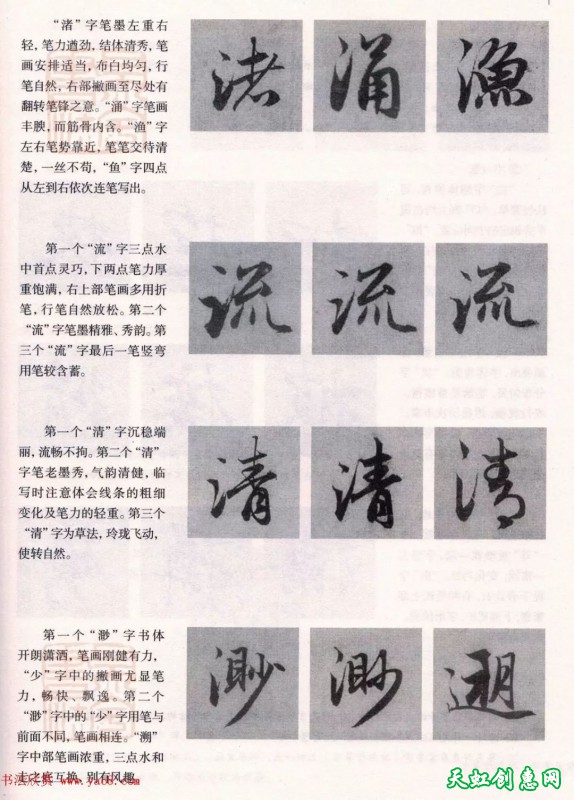 “渚”字笔墨左重右
轻，笔力遒劲，结体清秀，笔
画安排适当，布白均匀，行
笔自然，右部撇画至尽处有
翻转笔锋之意。“涌”字笔画
丰腴，而筋骨内含。“渔”字
左右笔势靠近，笔笔交待清
楚，一丝不苟，“鱼”字四点
从左到右依次连笔写出。
渚 涌 渔
第一个“流”字三点水
中首点灵巧，下两点笔力厚
重饱满，右上部笔画多用折
笔，行笔自然放松。第二个
“流”字笔墨精雅、秀韵。第
三个“流”字最后一笔竖弯
用笔较含蓄。
流 流 流
第一个“清”字沉稳端
丽，流畅不拘。第二个“清”
字笔老墨秀，气韵清健，临
写时注意体会线条的粗细
变化及笔力的轻重。第三个
“清”字为草法，玲珑飞动，
使转自然。
清 清 清
第一个“渺”字书体
开朗潇洒，笔画刚健有力，
“少”字中的撇画尤显笔
力，畅快、飘逸。第二个
“渺”字中的“少”字用笔与
前面不同，笔画相连。“溯”
字中部笔画浓重，三点水和
走之底互换，别有风趣。
渺 渺
书法欣赏 www.yac8.com
天虹创意网